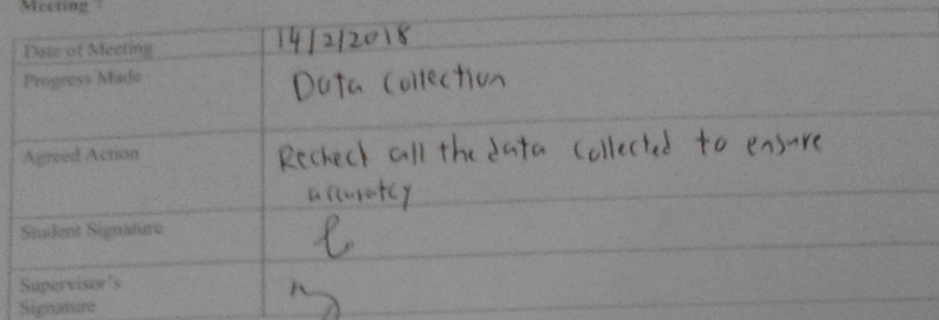 Meeting 7
Date of Meeting 14/2/2018
Progress Made Data Collection
Agreed Action Recheck all the data collected to ensure
accuracy
Student Signature
Supervisor's
Signature